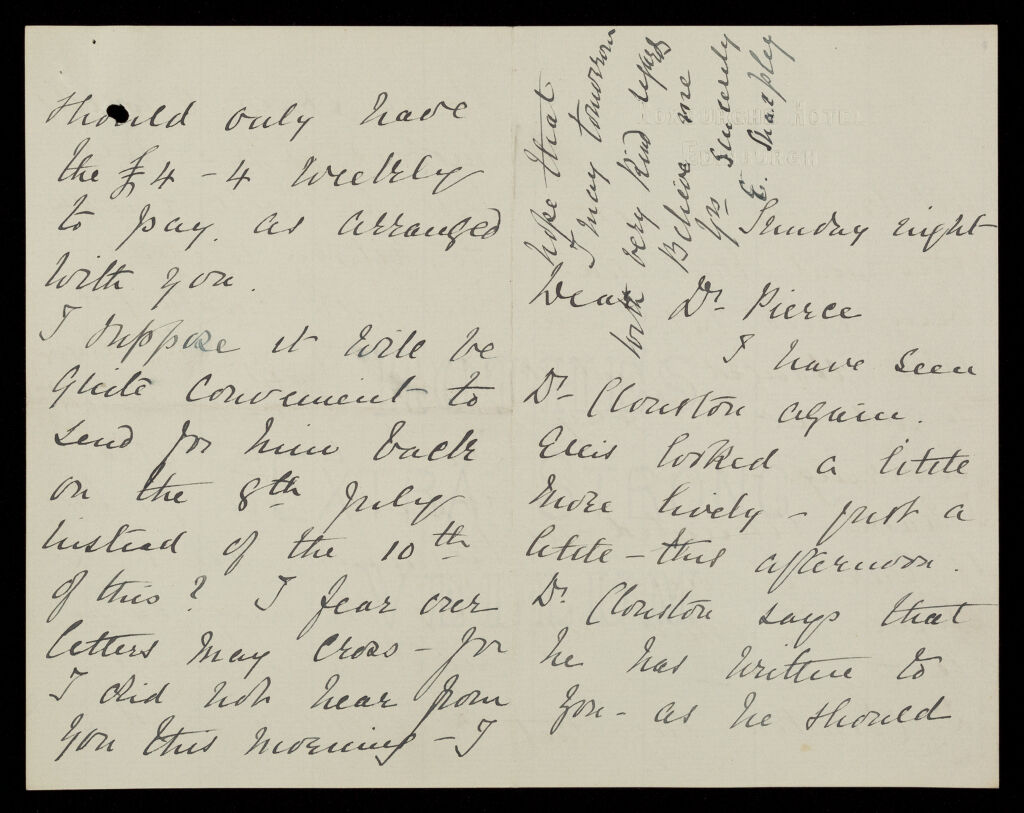 ROXBURGHE HOTEL
EDINBURGH
Sunday night
Dear Dr. Pierce
I have seen
Dr Clouston again.
Ellis looked a little
more lively - just a
little - this afternoon.
Dr. Clouston says that
he has written to
you - as he should
should only have
the £4-4 weekly
to pay. as arranged
with you.
I suppose it will be
quite convenient to
send for him back
on the 8th July
instead of the 10th
of this? I fear our
letters may cross - for
I did not hear from
you this morning - I
hope that
I may tomorrow
with very kind
Believe me
yrs sincerely
E. Sharpley